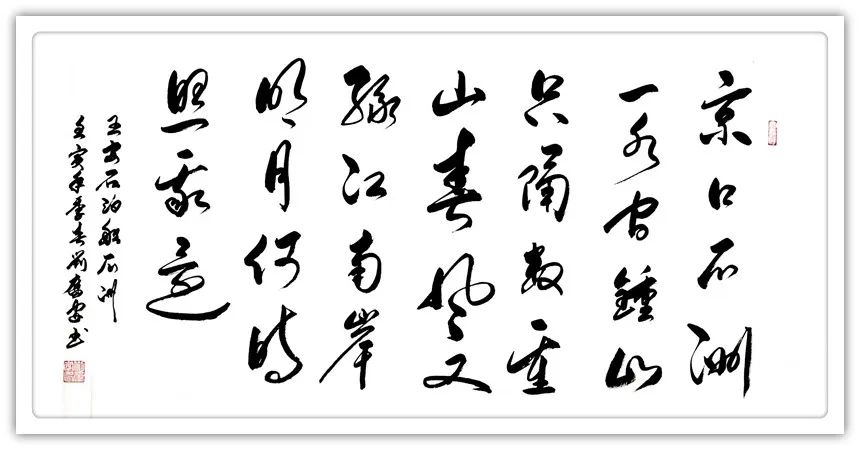 京口瓜洲
一水间鍾山
只隔数重
山春风又
绿江南岸
明月何时
照我还
王安石泊船瓜洲
壬寅年季春
书